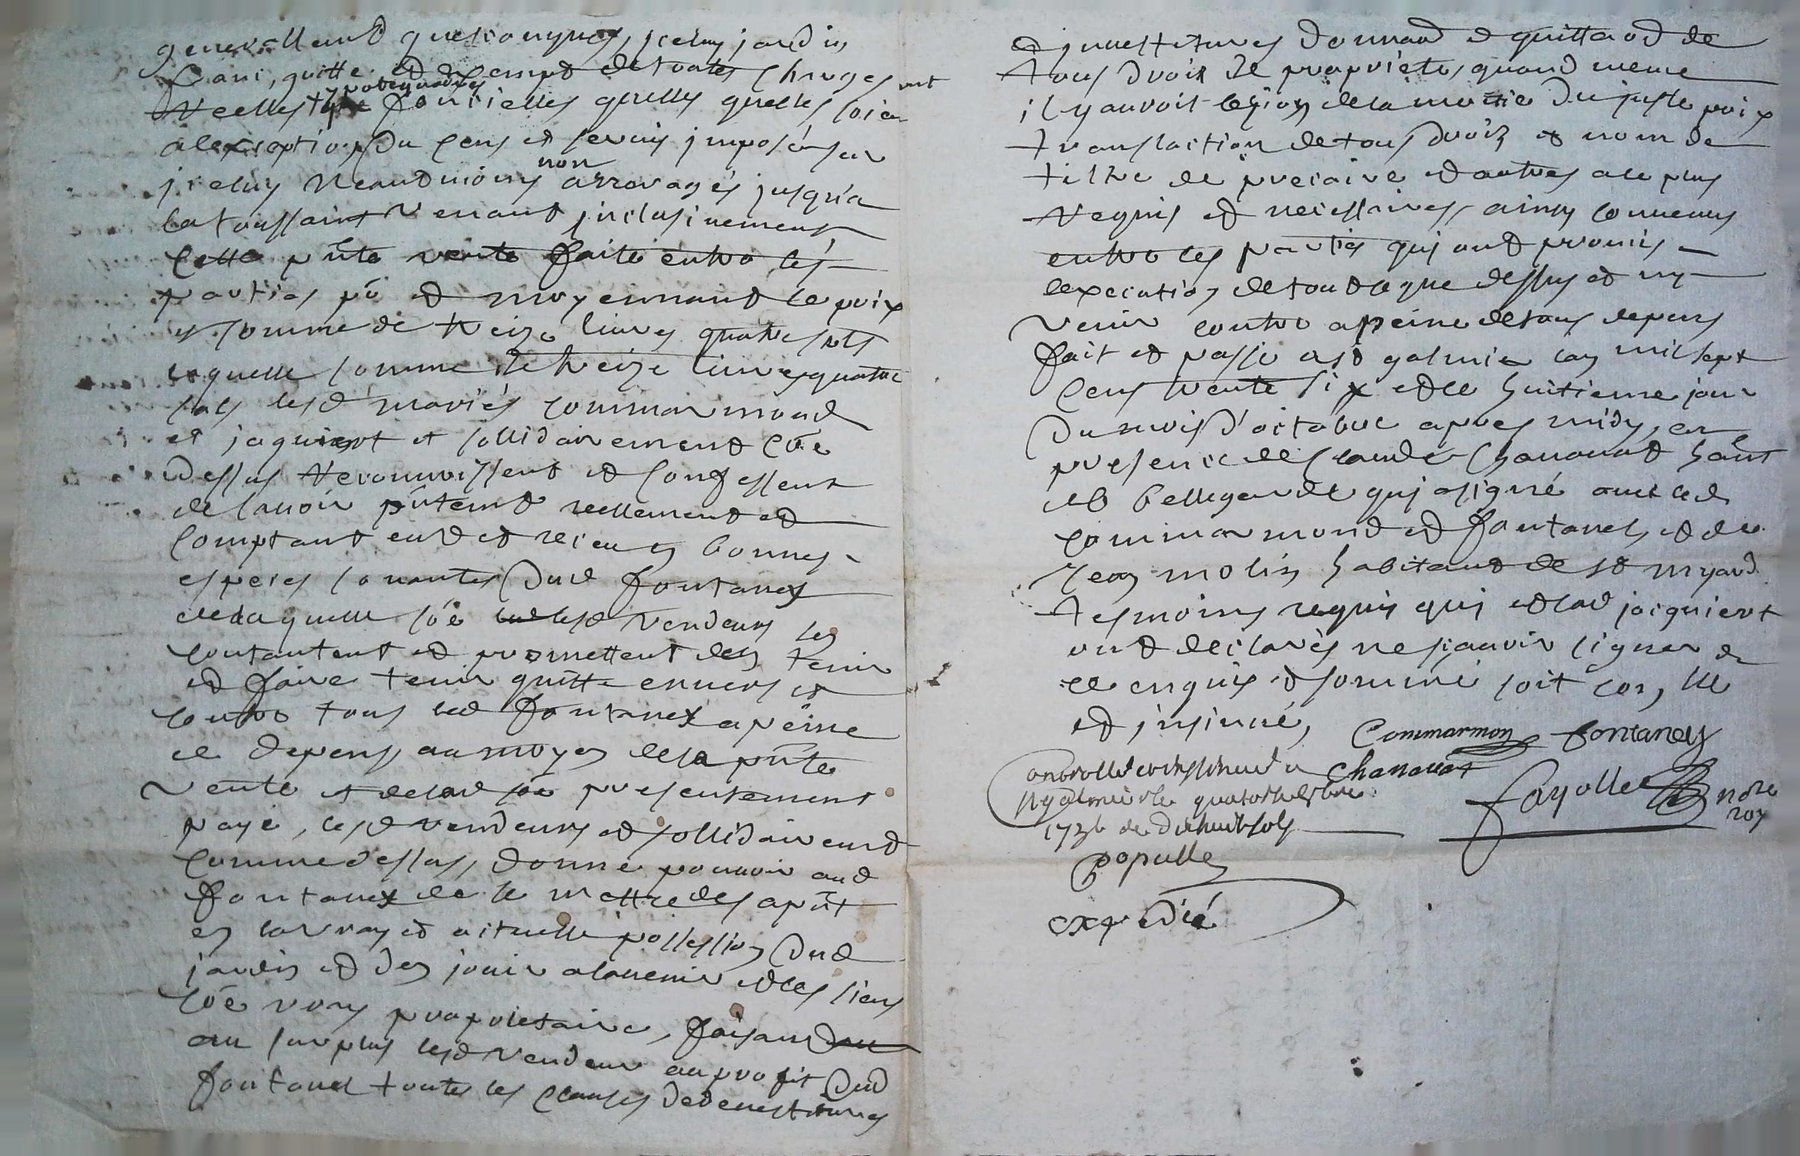 generallement quelconques, iceluy jardin
franc, quitte et exempt de toutes charges
reelles hypotequaires foncielles quelles quelles soient
a lexception du cens et servis imposé sur
iceluy neantmoins non arrovagés jusqua
la toussaint venant inclusivement
cette pnte vente faite entre les
parties pñ et moyennant le prix
et somme de treize livres quatre sols
laquelle somme de treize livres quatre
sols lesd mariés commarmond
et jaquient et sollidairement cõe
dessus reconnoissent et confessent
de lavoir pñtemt reellement et
comptant eu et receu en bonnes
especes sonantes dud fontaney
de laquelle sõe lesd vendeurs sen
contantent et promettent den tenir
et faire tenir quitte envers et
contre tous led fontaney a peine
de depens au moyen de la pñte
vente et de lad sõe presentement
payé, lesd vendeurs et sollidairemt
comme dessus, donne pouvoir aud
fontaney de se mettre des apñt
en la vray et actuelle possession dud
jardin et den jouir a lavenir et les siens
cõe vray proprietaire, faisant
au surplus lesd vendeur au profit dud
fontanel toutes les clauses de devestitures
et jnvestitures donnant et quittant de
tous droit de proprietes quand meme
il y auroit lezion de la moitie du juste prix
translaction de tous droit et nom de
tiltre de precaire et autres a ce plus
requis et necessaires, ainsy convenus
entre les parties qui ont promis
lexecution de tout ce que dessus et ny
venir contre a peine de tous depens
fait et passé a st galmier lan mil sept
cens trente six et le huitieme jour
du mois d'octobre apres midy, en
presence de claude chanavat habñt
de bellegarde qui a signé avec led
commarmond et fontanel, et de
jean molin habitant de st myard
tesmoins requis qui et lad jacquient
ont declarés ne sçavoir signer de
ce enquis et sommé soit con, lle
et insinué,
Commarmon fontaney
Chanavat
fayolle nore roy
controllé et insinué a
st galmier le quatorze 8bre
1736 de dix huit sols
populle
expedié